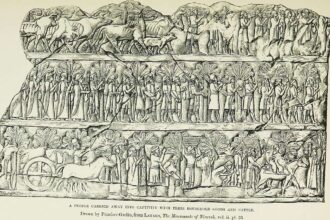 A PEOPLE CARRIED AWAY INTO CAPTIVITY WITH THEIR HOUSEHOLD GOODS AND CATTLE.
Drawn by Faucher-Gudin, from LAYARD, The Monuments of Nineveh, vol. ii. pl.